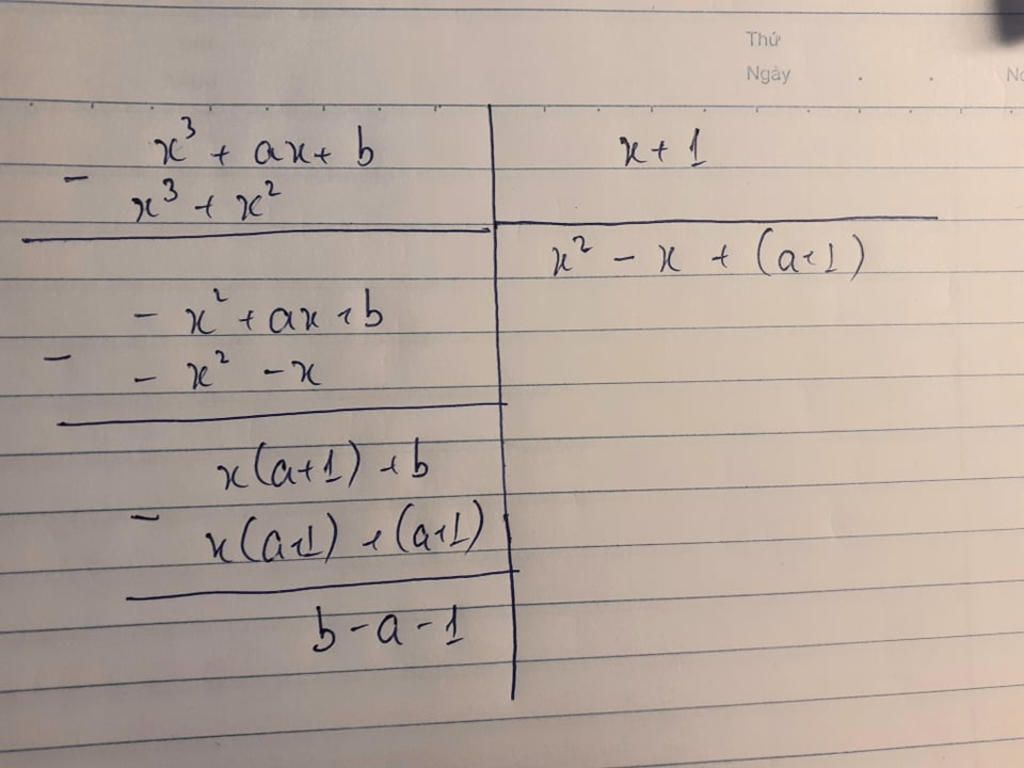 Thứ
Ngày
x³ + ax + b
x + 1
-
x³ + x²
x² - x + (a+1)
- x² + ax + b
-
- x² - x
x(a+1) + b
-
x(a+1) + (a+1)
b - a - 1